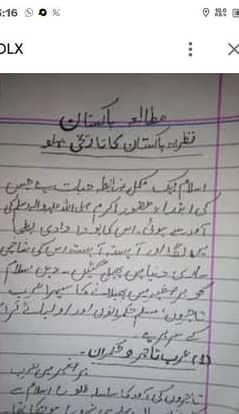 :16
OLX
مطالعہ پاکستان
نظریہ پاکستان کا تاریخی پہلو
اسلام ایک مکمل ضابطہ حیات ہے جس
کی ابتداء حضور اکرم صلی اللہ علیہ والہ وسلم کی
آمد سے ہوئی اس کا پودا وادی بطحا
میں لگا اور آہستہ آہستہ اس کی شاخیں
ساری دنیا میں پھیل گئیں۔ دین اسلام
کو برصغیر میں پھیلانے کا سہرا عرب
تاجروں، مسلم حکمرانوں اور اولیائے کرام
کے سر ہے۔
(1) عرب تاجر و حکمران۔
برصغیر میں عرب
تاجروں کی آمد کا سلسلہ طلوع اسلام سے